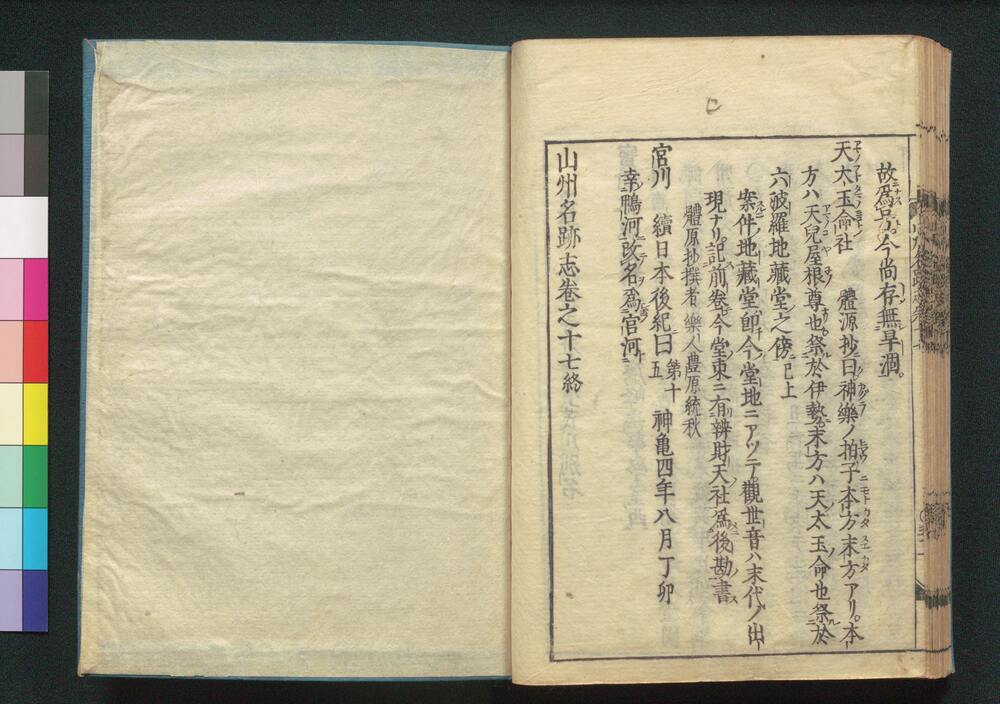 故爲号。今尚存無旱涸。
天太玉命社　體源抄曰神樂ノ拍子本方末方アリ。本
方ハ天兒屋根尊也祭於伊勢末方ハ天太玉命也祭於
六波羅地藏堂之傍已上
案件地藏堂卽今堂地ニアツテ觀世音ハ末代ノ出
現ナリ記前卷今堂東ニ有辨財天社爲後勘書
體原抄撰者樂人豊原統秋
宮川　續日本後紀曰第十五　神亀四年八月丁卯
幸鴨河改名爲宮河
山州名跡志卷之十七終